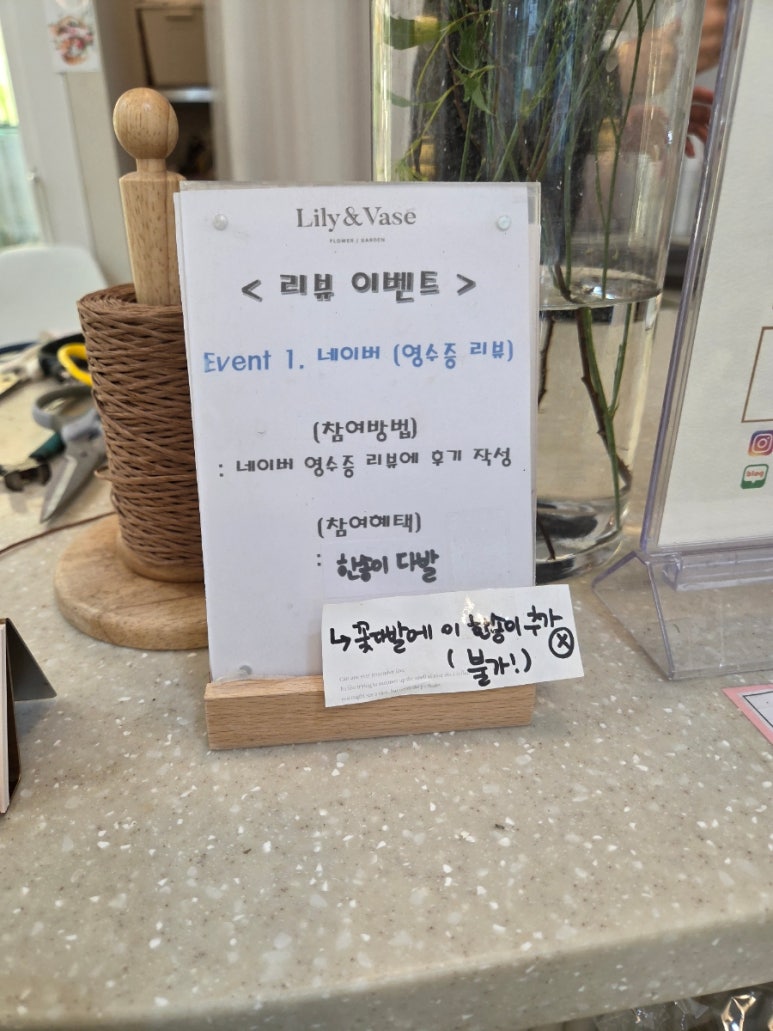 Lily&Vase
FLOWER / GARDEN
< 리뷰 이벤트 >
Event 1. 네이버 (영수증 리뷰)
(참여방법)
: 네이버 영수증 리뷰에 후기 작성
(참여혜택)
: 한송이 다발
↳ 꽃다발에 이 한송이 추가 ⓧ
( 불가! )
blog